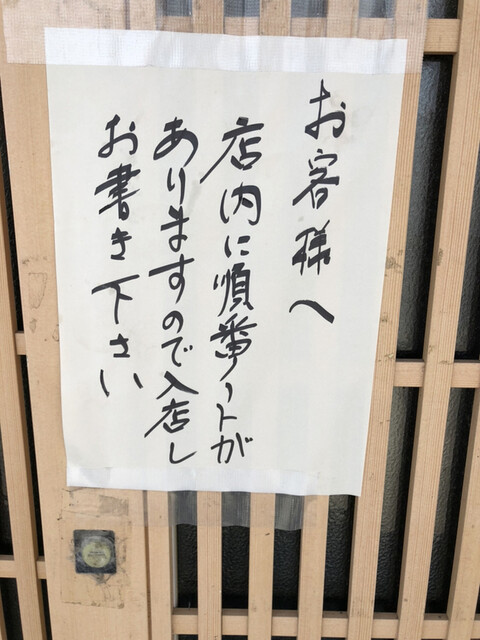 お客様へ
店内に順番ノートが
ありますので入店し
お書き下さい